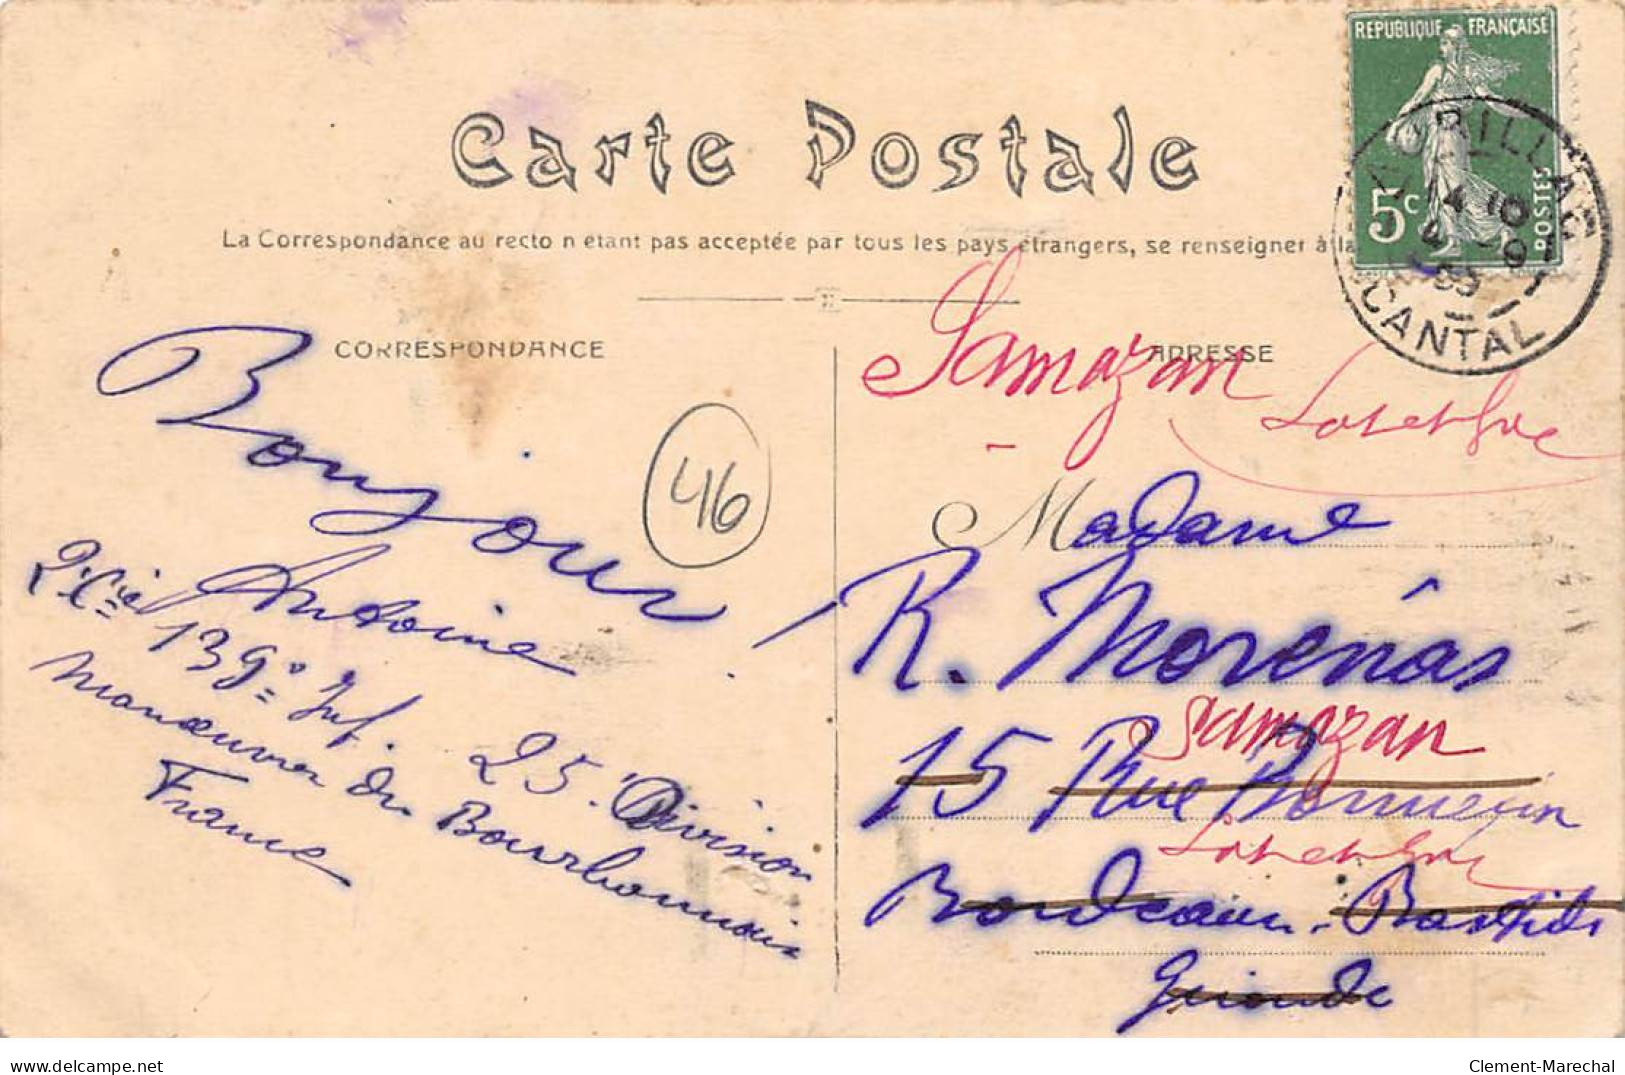 REPUBLIQUE FRANÇAISE
5c POSTES
AURILLAC
CANTAL
Carte Postale
La Correspondance au recto n'étant pas acceptée par tous les pays étrangers, se renseigner à la
CORRESPONDANCE
ADRESSE
Bonjour !
Antoine
46
2e Cie 139e Inf. 25. Division
Manœuvres du Bourbonnais
France
Samazan
Lot et Gne
Madame
R. Morenas
Samazan
15 Rue
Lot et Gne
Bordeaux-Bastide
Gironde
delcampe.net
Clement-Marechal